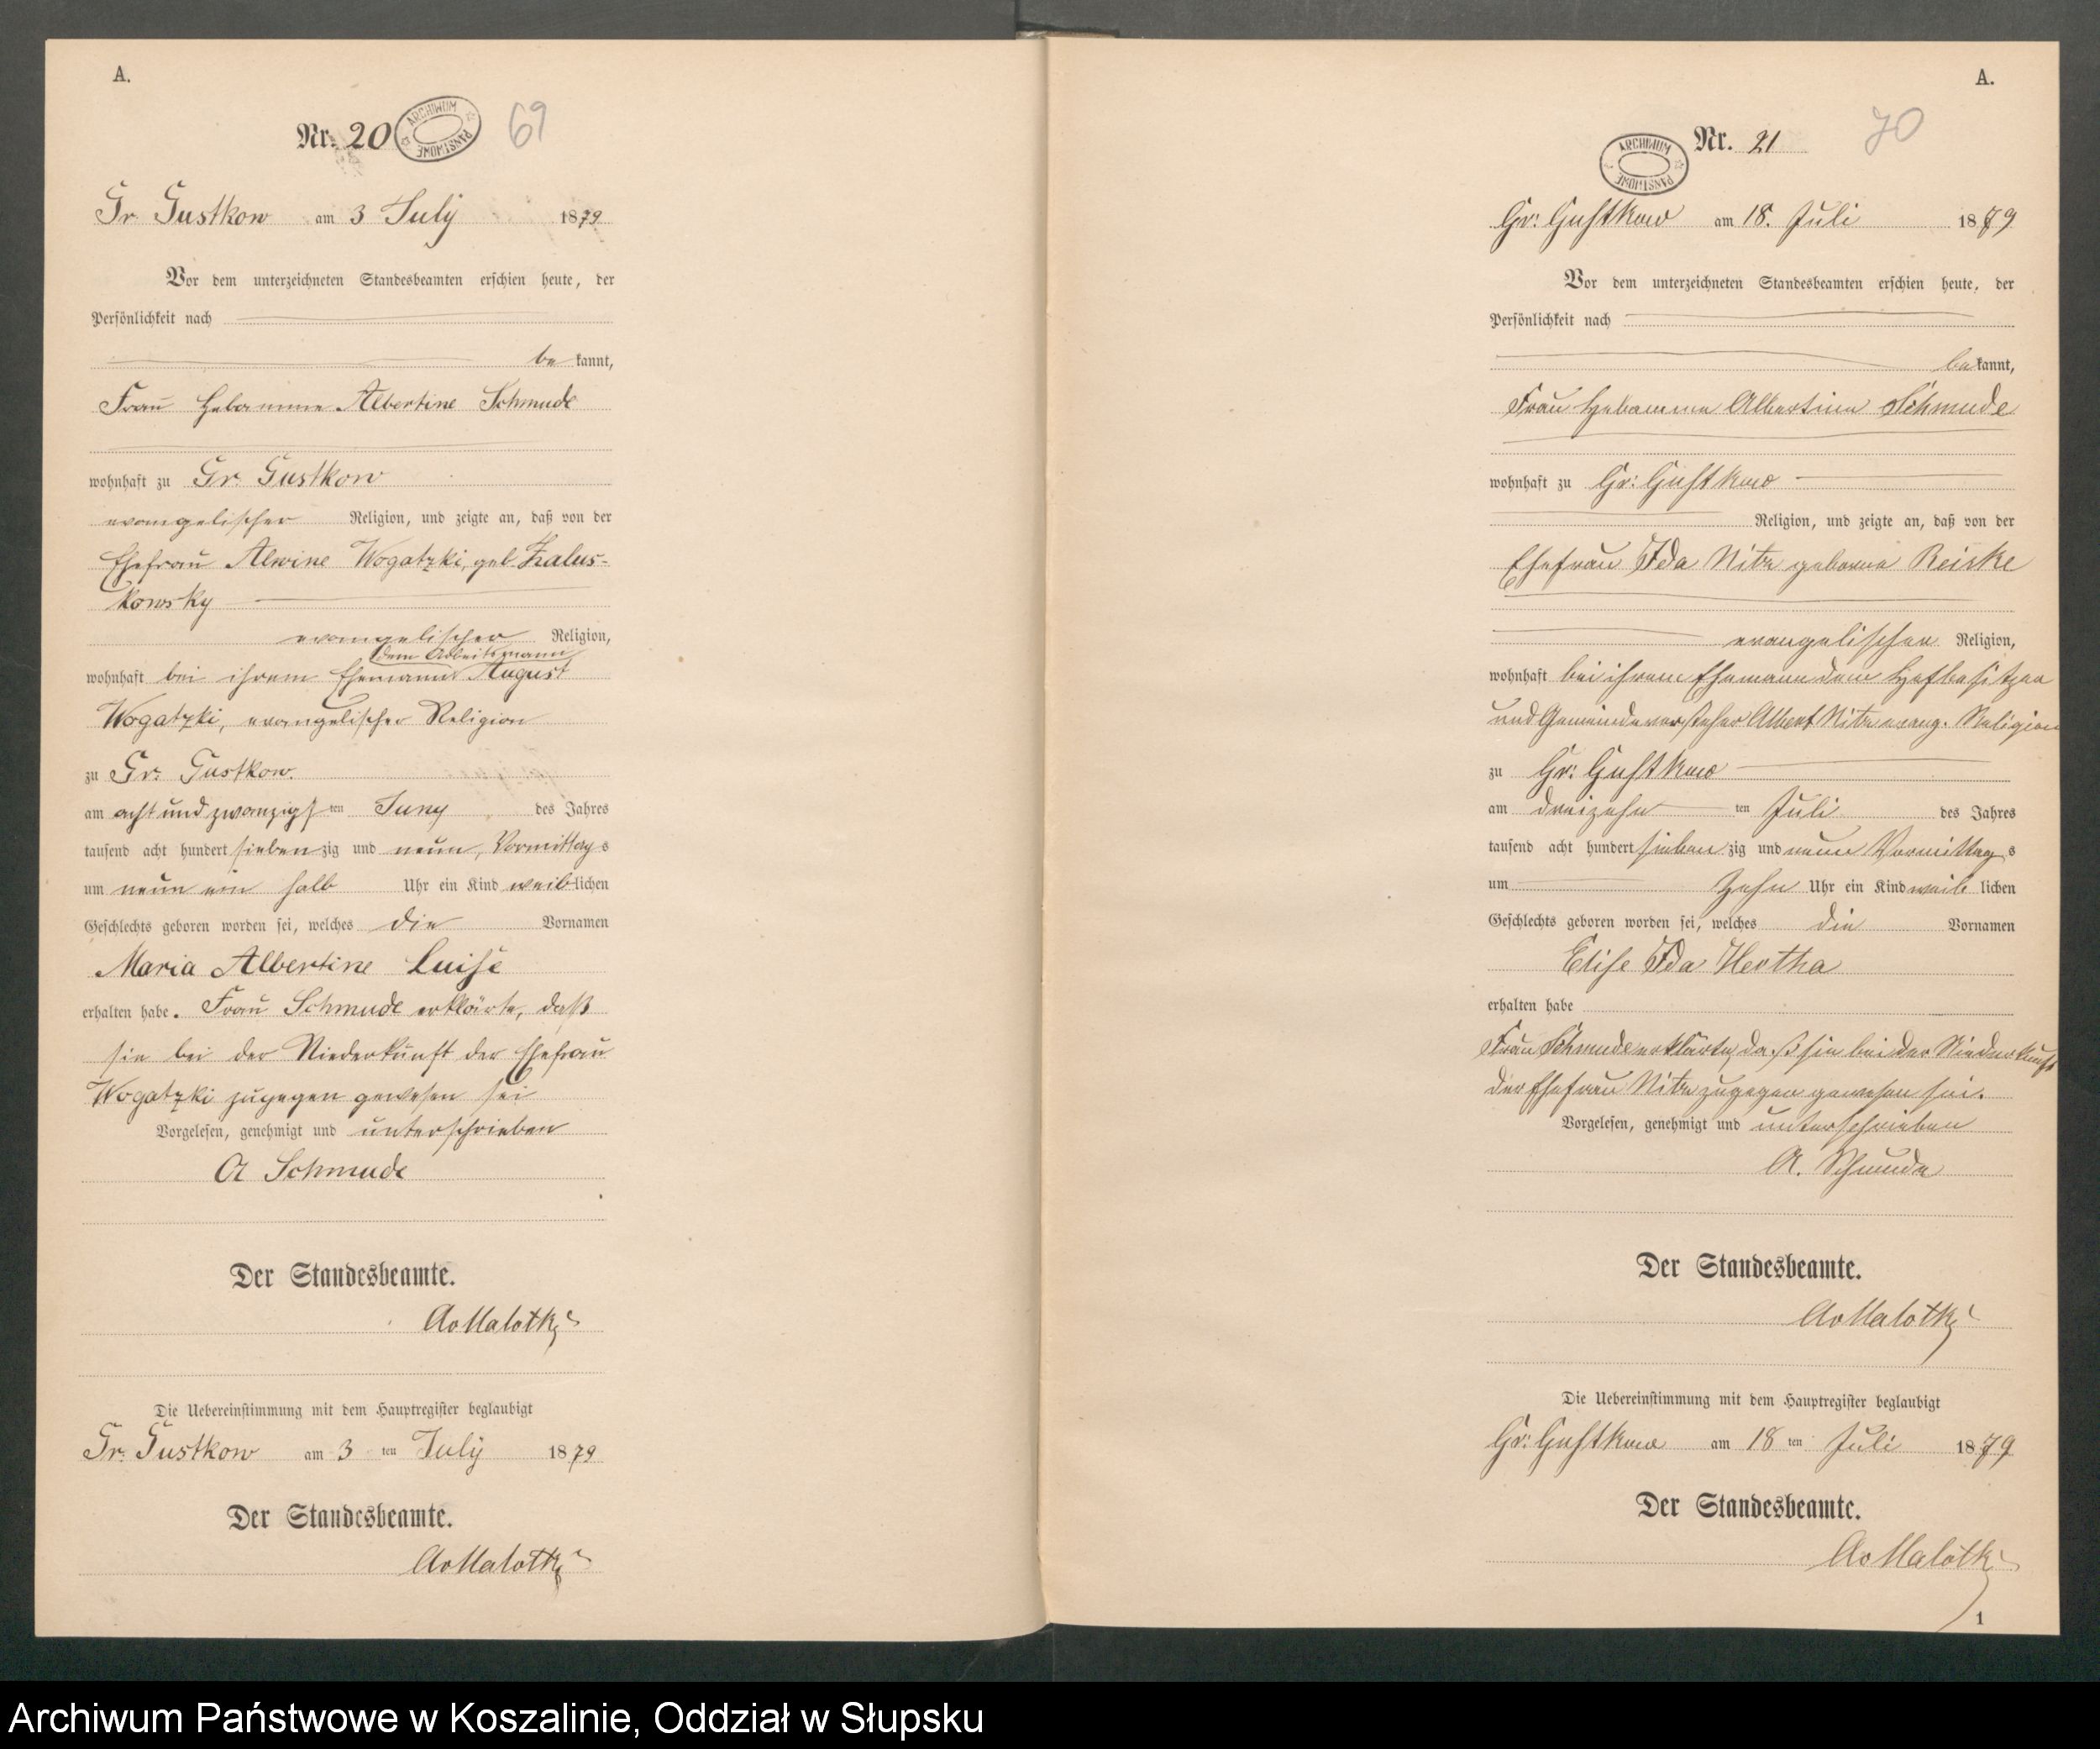 A.
Nr. 20
ARCHIWUM PAŃSTWOWE
69
Gr. Gustkow am 3 July 1879
Vor dem unterzeichneten Standesbeamten erschien heute, der
Persönlichkeit nach
be kannt,
Frau Hebamme Albertine Schmude
wohnhaft zu Gr. Gustkow
evangelischer Religion, und zeigte an, daß von der
Ehefrau Alwine Wogatzki, geb. Zalus-
kowsky
evangelischer Religion,
dem Arbeitsmann
wohnhaft bei ihrem Ehemann August
Wogatzki, evangelischer Religion
zu Gr. Gustkow.
am acht und zwanzigsten Juny des Jahres
tausend acht hundert siebenzig und neun, Vormittags
um neun ein halb Uhr ein Kind weiblichen
Geschlechts geboren worden sei, welches die Vornamen
Maria Albertine Luise
erhalten habe. Frau Schmude erklärte, daß
sie bei der Niederkunft der Ehefrau
Wogatzki zugegen gewesen sei
Vorgelesen, genehmigt und unterschrieben
A Schmude
Der Standesbeamte.
AvMalotki
Die Uebereinstimmung mit dem Hauptregister beglaubigt
Gr. Gustkow am 3 ten July 1879
Der Standesbeamte.
AvMalotki
A.
Nr. 21
ARCHIWUM PAŃSTWOWE
70
Gr: Gustkow am 18. Juli 1879
Vor dem unterzeichneten Standesbeamten erschien heute, der
Persönlichkeit nach
bekannt,
Frau Hebamme Albertine Schmude
wohnhaft zu Gr: Gustkow
Religion, und zeigte an, daß von der
Ehefrau Ida Nitze geborne Reiske
evangelischen Religion,
wohnhaft bei ihrem Ehemann dem Hofbesitzer
und Gemeindevorsteher Albert Nitze evang. Religion
zu Gr: Gustkow
am dreizehn ten Juli des Jahres
tausend acht hundert siebenzig und neun Vormittags
um Zehn Uhr ein Kind weiblichen
Geschlechts geboren worden sei, welches die Vornamen
Elise Ida Hertha
erhalten habe
Frau Schmude erklärte, daß sie bei der Niederkunft
der Ehefrau Nitze zugegen gewesen sei.
Vorgelesen, genehmigt und unterschrieben
A. Schmude
Der Standesbeamte.
AvMalotki
Die Uebereinstimmung mit dem Hauptregister beglaubigt
Gr: Gustkow am 18 ten Juli 1879
Der Standesbeamte.
AvMalotki
1
Archiwum Państwowe w Koszalinie, Oddział w Słupsku